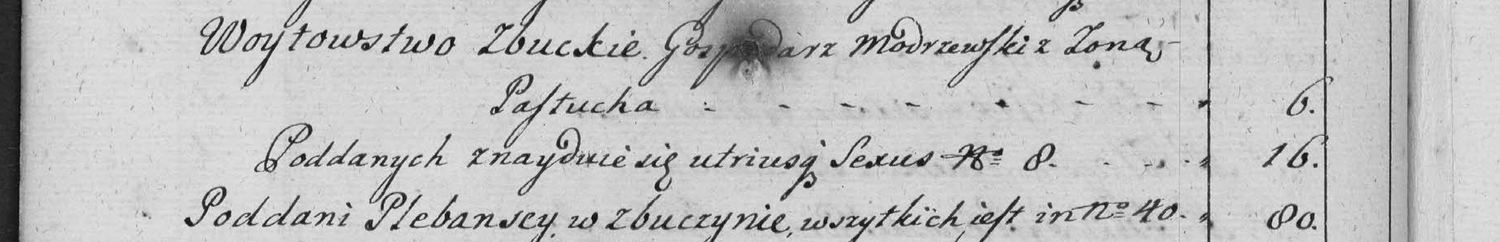 Woytowstwo Zbuckie. Gospodarz Modrzewski z Zoną
Pastucha - - - - - - - 6.
Poddanych znayduie się utriusq Sexus No 8. - - - 16.
Poddani Plebanscy w Zbuczynie, wszytkich iest in No 40. - 80.